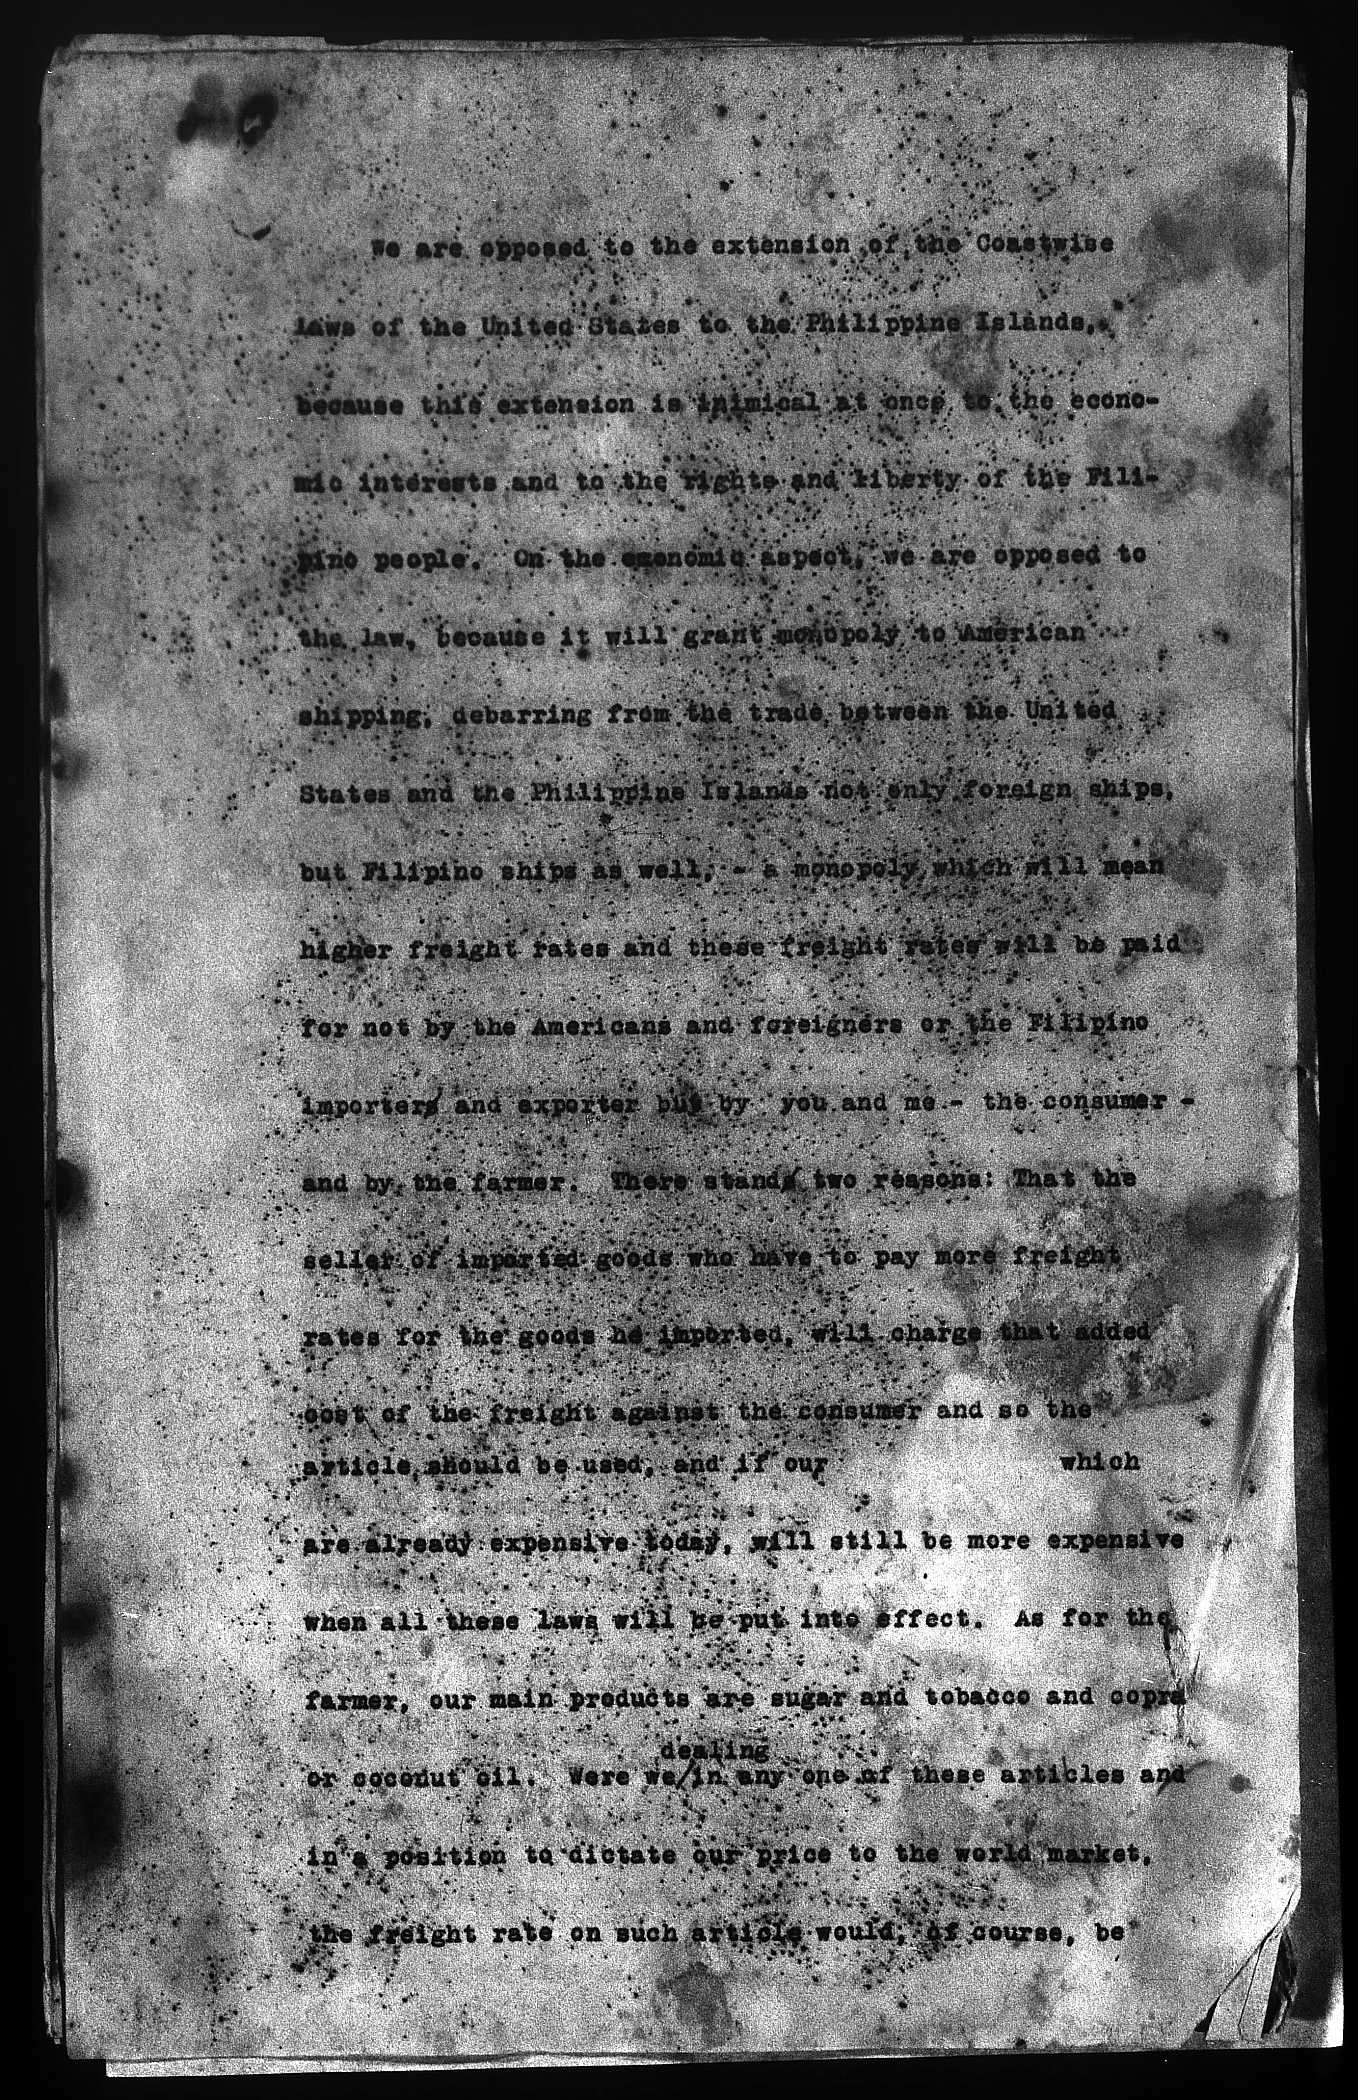 We are opposed to the extension of the Coastwise
laws of the United States to the Philippine Islands,
because this extension is inimical at once to the econo-
mic interests and to the rights and liberty of the Fili-
pino people. On the economic aspect, we are opposed to
the law, because it will grant monopoly to American
shipping, debarring from the trade between the United
States and the Philippine Islands not only foreign ships,
but Filipino ships as well, - a monopoly which will mean
higher freight rates and these freight rates will be paid
for not by the Americans and foreigners or the Filipino
importers and exporter but by you and me - the consumer -
and by the farmer. There stands two reasons: That the
seller of imported goods who have to pay more freight
rates for the goods he imported, will charge that added
cost of the freight against the consumer and so the
article should be used, and if our which
are already expensive today, will still be more expensive
when all these laws will be put into effect. As for the
farmer, our main products are sugar and tobacco and copra
dealing
or coconut oil. Were we/in any one of these articles and
in a position to dictate our price to the world market,
the freight rate on such article would, of course, be